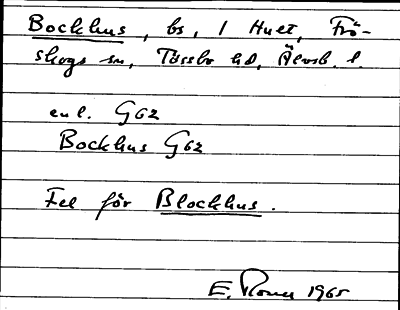 Bockhus, bs, 1 Hult, Frö-
skogs sn, Tössbo hd, Älvsb. l.
enl. G62
Bockhus G62
Fel för Blockhus.
E. 1965